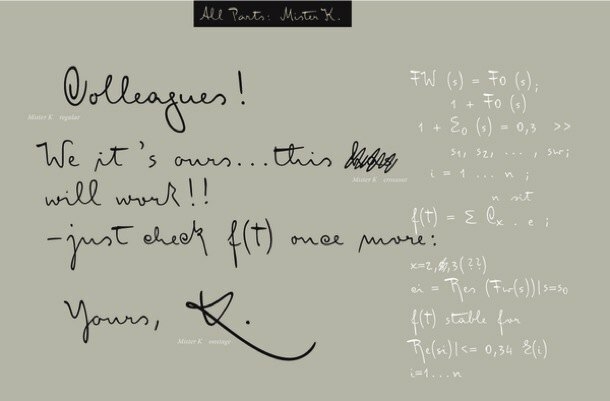 All Parts: Mister K.
Colleagues!
Mister K regular
We it's ours...this
Mister K crossout
will work!!
-just check f(t) once more:
Yours, K.
Mister K onstage
FW (s) = Fo (s);
1 + Fo (s)
1 + Σo (s) = 0,3 >>
s1, s2, ... , sw;
i = 1 ... n ;
n sit
f(t) = Σ Cx . e ;
x=2, ,3(??)
ei = Res (Fw(s))|s=s0
f(t) stable for
Re(si)|<= 0,34 Σ(i)
i=1...n